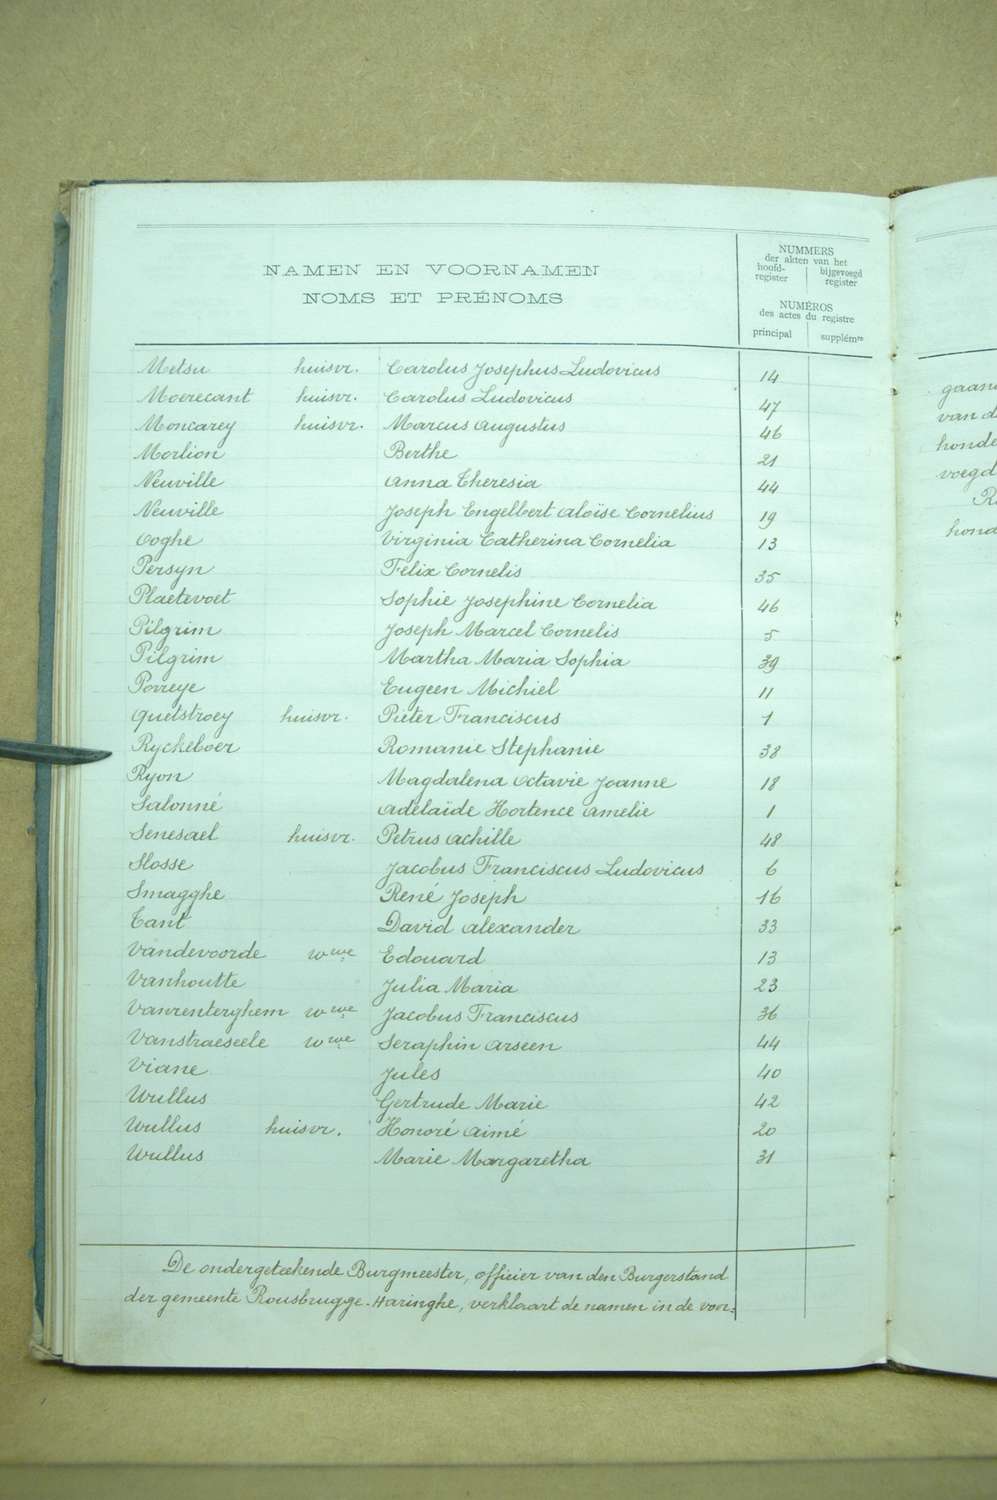 NAMEN EN VOORNAMEN
NOMS ET PRÉNOMS
NUMMERS
der akten van het
hoofd-register bijgevoegd register
NUMÉROS
des actes du registre
principal supplémre
Metsu huisvr. Carolus Josephus Ludovicus 14
Moerecant huisvr. Carolus Ludovicus 47
Moncarey huisvr. Marcus Augustus 46
Morlion Berthe 21
Neuville Anna Theresia 44
Neuville Joseph Engelbert Aloïse Cornelius 19
Ooghe Virginia Catherina Cornelia 13
Persyn Felix Cornelis 35
Plaetevoet Sophie Josephine Cornelia 46
Pilgrim Joseph Marcel Cornelis 5
Pilgrim Martha Maria Sophia 39
Povreye Eugeen Michiel 11
Quetstroey huisvr. Pieter Franciscus 1
Ryckeboer Romanie Stephanie 38
Ryon Magdalena Octavie Joanne 18
Salonné Adelaïde Hortence Amelie 1
Senesael huisvr. Petrus Achille 48
Slosse Jacobus Franciscus Ludovicus 6
Smagghe René Joseph 16
Tant David Alexander 33
Vandevoorde wwe Edouard 13
Vanhoutte Julia Maria 23
Vanrenterghem wwe Jacobus Franciscus 36
Vanstraeseele wwe Seraphin Arseen 44
Viane Jules 40
Wullus Gertrude Marie 42
Wullus huisvr. Honoré Aimé 20
Wullus Marie Margaretha 31
De ondergeteekende Burgmeester, officier van den Burgerstand
der gemeente Rousbrugge-Haringhe, verklaart de namen in de voor=
gaan
van d
honde
voegd
R
hond